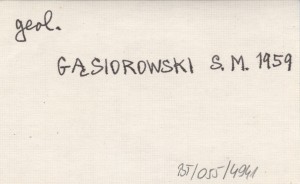 geol.
GĄSIOROWSKI S. M. 1959
BJ/055/4941